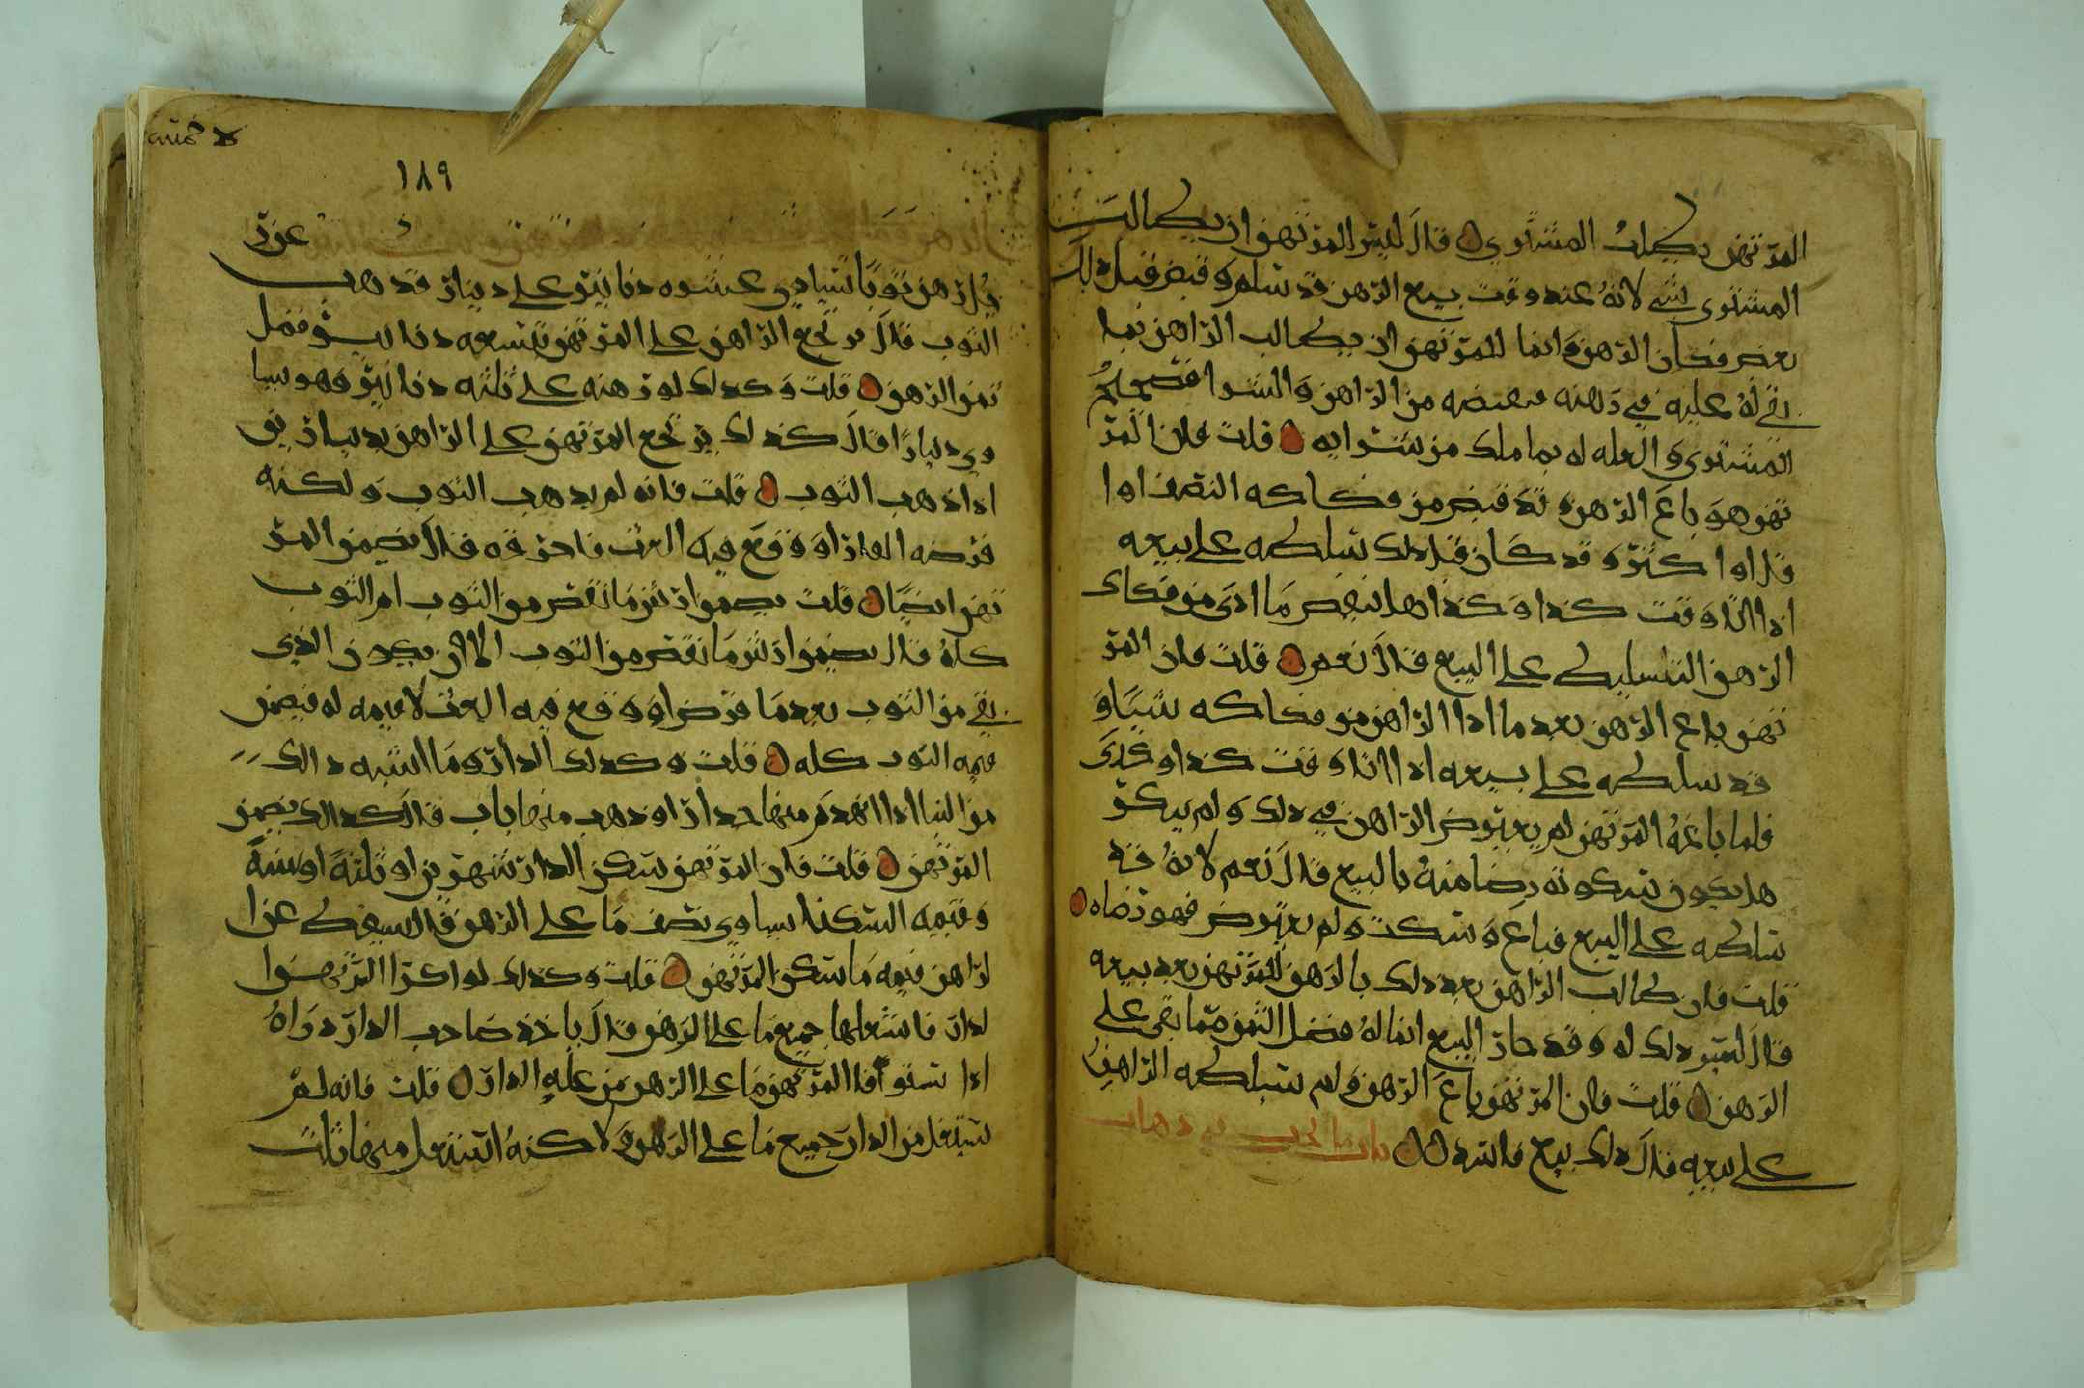 المرتهن يطلب المشتري قال ليس للمرتهن ان يطالب
المشتري بشي لانه عنده وقت بيع الرهن قد سلم وقبض قبل ذلك
بعض فكاك الرهن وانما للمرتهن ان يطالب الراهن بما
بقي له عليه في رهنه فيقبضه من الراهن والشرا فصحيح
للمشتري والغله له بما ملك من شرايه قلت فان المر
تهن هو باع الرهن وقد قبض من فكاكه النصف او
قل او اكثر وقد كان قبل ذلك سلطه على بيعه
اذا اتا وقت كذا وكذا هل ينقض ما ادى من فكاك
الرهن التسليط على البيع قال نعم قلت فان المر
تهن باع الرهن بعد ما ادا الراهن من فكاكه شيا و
قد سلطه على بيعه اذا اتا وقت كذا وكذى
فلما باعه المرتهن لم يعترض الراهن في ذلك ولم ينكر
هل يكون سكوته رضا منه بالبيع قال نعم لانه قد
سلطه على البيع فباع وسكت ولم يعترض فهو رضاه
قلت فان طالب الراهن بعد ذلك بالرهن للمرتهن بعد بيعه
قال ليس ذلك له وقد جاز البيع انما له فضل الثمن مما بقي على
الرهن قلت فان المرتهن باع الرهن ولم يسلطه الراهن
على بيعه قال ذلك بيع فاسد باب ما يجب في ذهاب
١٨٩
عن ر
جل رهن ثوبا يساوي عشره دنانير على دينار فذهب
الثوب قال يرجع الراهن على المرتهن بتسعه دنانير فضل
ثمن الرهن قلت وكذلك لو رهنه على ثلثه دنانير وهو يسا
وي دينارا قال كذلك يرجع المرتهن على الراهن بدينارين
اذا ذهب الثوب قلت فانه لم يذهب الثوب ولكنه
قرضه الفار او وقع فيه العث فاحرقه قال يضمن المر
تهن ايضا قلت يضمن ارش ما نقص من الثوب ام الثوب
كله قال يضمن ارش ما نقص من الثوب الا ان يكون الذي
بقي من الثوب بعد ما قرض او وقع فيه العث لا قيمه له فيضمن
قيمه الثوب كله قلت وكذلك الدار وما اشبه ذالك
من البنا اذا انهدم منها جدار او ذهب منها باب قال كذالك يضمن
المرتهن قلت فان المرتهن سكن الدار شهرين او ثلثة او سنة
وقيمه السكنا يساوي نصف ما على الرهن قال يسقط عن ا
لراهن قيمه ما سكن المرتهن قلت وكذلك لو اكرا المرتهن ا
لدار فاستغلها جميع ما على الرهن قال ياخذ صاحب الدار داره
اذا استوفا المرتهن ما على الرهن من غله الدار قلت فانه لم
يستغل من الدار جميع ما على الرهن ولاكنه استغل منها ثلث